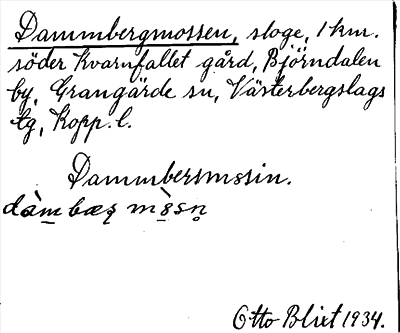 Dammbergmossen, sloge, 1 km.
söder Kvarnfallet gård, Björndalen
by, Grangärde sn, Västerbergslags
tg, Kopp. l.
Dammbersmssin.
dàm bæʂ mò̤sn̥
Otto Blixt 1934.